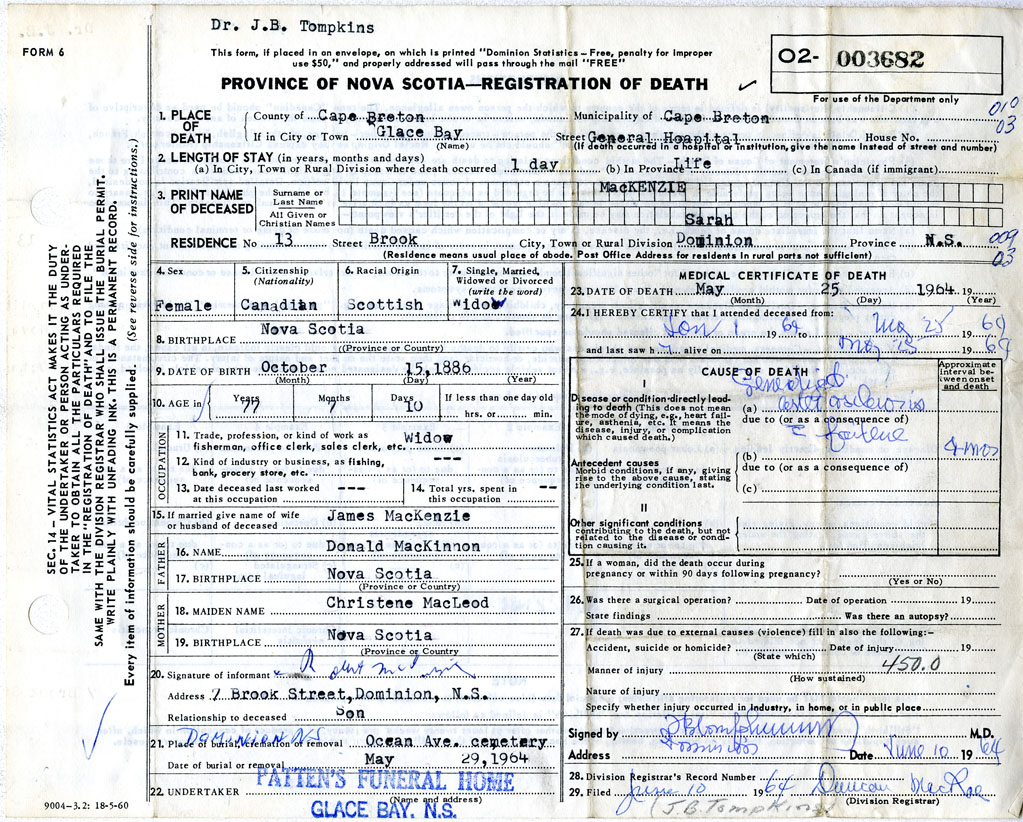 Dr. J.B. Tompkins
FORM 6
This form, if placed in an envelope, on which is printed "Dominion Statistics – Free, penalty for improper
use $50," and properly addressed will pass through the mail "FREE"
PROVINCE OF NOVA SCOTIA—REGISTRATION OF DEATH
O2- 003682
For use of the Department only
010
03
1. PLACE OF DEATH
County of Cape Breton Municipality of Cape Breton
If in City or Town Glace Bay Street General Hospital House No.
(Name) (If death occurred in a hospital or institution, give the name instead of street and number)
2. LENGTH OF STAY (in years, months and days)
(a) In City, Town or Rural Division where death occurred 1 day (b) In Province Life (c) In Canada (if immigrant)
3. PRINT NAME OF DECEASED
Surname or Last Name MacKENZIE
All Given or Christian Names Sarah
RESIDENCE No 13 Street Brook City, Town or Rural Division Dominion Province N.S.
009
03
(Residence means usual place of abode. Post Office Address for residents in rural parts not sufficient)
4. Sex
Female
5. Citizenship (Nationality)
Canadian
6. Racial Origin
Scottish
7. Single, Married, Widowed or Divorced (write the word)
Widow
8. BIRTHPLACE Nova Scotia
(Province or Country)
9. DATE OF BIRTH October 15,1886
(Month) (Day) (Year)
10. AGE in Years Months Days If less than one day old
77 7 10 hrs. or min.
OCCUPATION
11. Trade, profession, or kind of work as fisherman, office clerk, sales clerk, etc. Widow
12. Kind of industry or business, as fishing, bank, grocery store, etc. ---
13. Date deceased last worked at this occupation --- 14. Total yrs. spent in this occupation --
15. If married give name of wife or husband of deceased James MacKenzie
FATHER
16. NAME Donald MacKinnon
17. BIRTHPLACE Nova Scotia
(Province or Country)
MOTHER
18. MAIDEN NAME Christene MacLeod
19. BIRTHPLACE Nova Scotia
(Province or Country
20. Signature of informant
Address 7 Brook Street,Dominion, N.S.
Relationship to deceased Son
Dominion NS
21. Place of burial, cremation or removal Ocean Ave. cemetery
Date of burial or removal May 29,1964
22. UNDERTAKER PATTEN'S FUNERAL HOME
(Name and address)
GLACE BAY, N.S.
MEDICAL CERTIFICATE OF DEATH
23. DATE OF DEATH May 25 1964. 19
(Month) (Day) (Year)
24. I HEREBY CERTIFY that I attended deceased from:
Jan 1 19 64 to May 25 1964
and last saw h alive on May 25 1964
CAUSE OF DEATH
Approximate interval between onset and death
I
Disease or condition directly leading to death (This does not mean the mode of dying, e.g., heart failure, asthenia, etc. It means the disease, injury, or complication which caused death.)
Generalized
(a) arteriosclerosis
due to (or as a consequence of)
4 mos
Antecedent causes
Morbid conditions, if any, giving rise to the above cause, stating the underlying condition last.
(b)
due to (or as a consequence of)
(c)
II
Other significant conditions
contributing to the death, but not related to the disease or condition causing it.
25. If a woman, did the death occur during pregnancy or within 90 days following pregnancy?
(Yes or No)
26. Was there a surgical operation? Date of operation 19
State findings Was there an autopsy?
27. If death was due to external causes (violence) fill in also the following:–
Accident, suicide or homicide? Date of injury 19
(State which)
450.0
Manner of injury
(How sustained)
Nature of injury
Specify whether injury occurred in industry, in home, or in public place
Signed by M.D.
Address Dominion Date June 10 19 64
28. Division Registrar's Record Number
29. Filed June 10 19 64 Duncan MacRae
(Division Registrar)
(J.B. Tompkins)
9004-3.2: 18-5-60
SEC. 14 – VITAL STATISTICS ACT MAKES IT THE DUTY
OF THE UNDERTAKER OR PERSON ACTING AS UNDER-
TAKER TO OBTAIN ALL THE PARTICULARS REQUIRED
IN THE "REGISTRATION OF DEATH" AND TO FILE THE
SAME WITH THE DIVISION REGISTRAR WHO SHALL ISSUE THE BURIAL PERMIT.
WRITE PLAINLY WITH UNFADING INK. THIS IS A PERMANENT RECORD.
Every item of information should be carefully supplied. (See reverse side for instructions.)